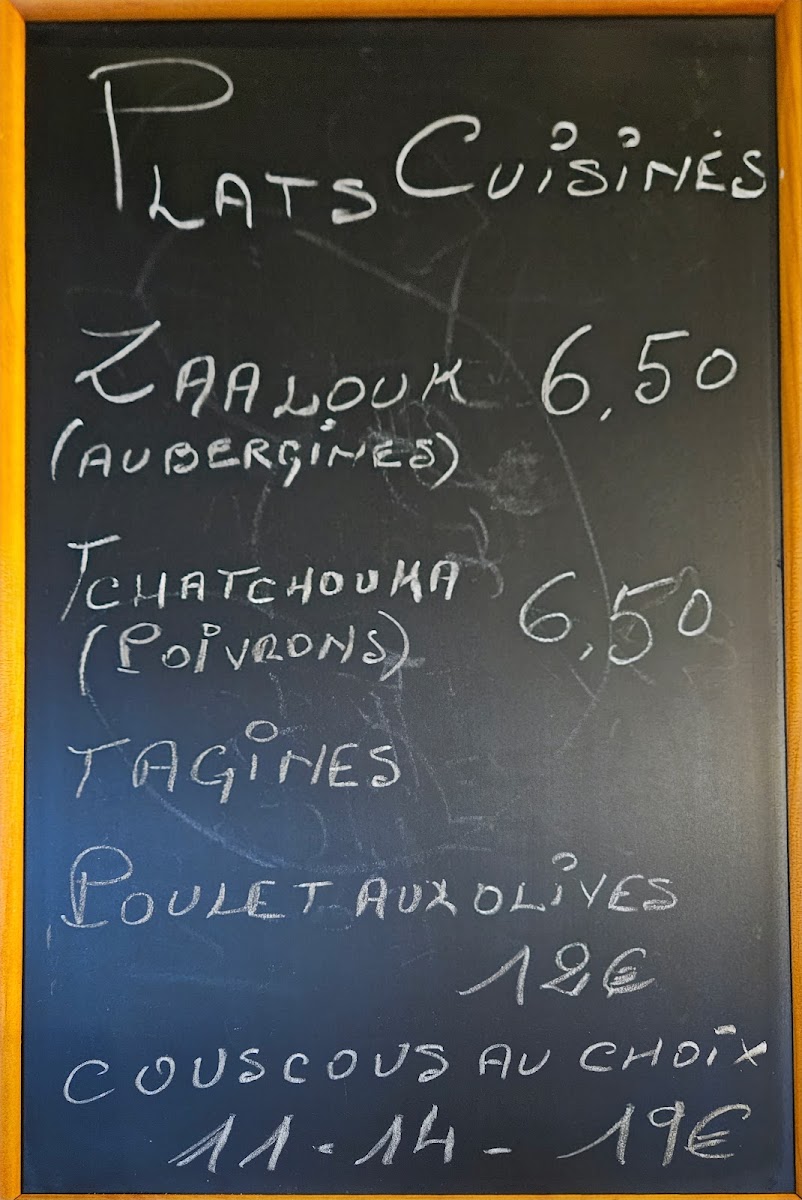 PLATS CUISINÉS
ZAALOUK 6,50
(AUBERGINES)
TCHATCHOUKA 6,50
(POIVRONS)
TAGINES
POULET AUX OLIVES
12€
COUSCOUS AU CHOIX
11-14-19€